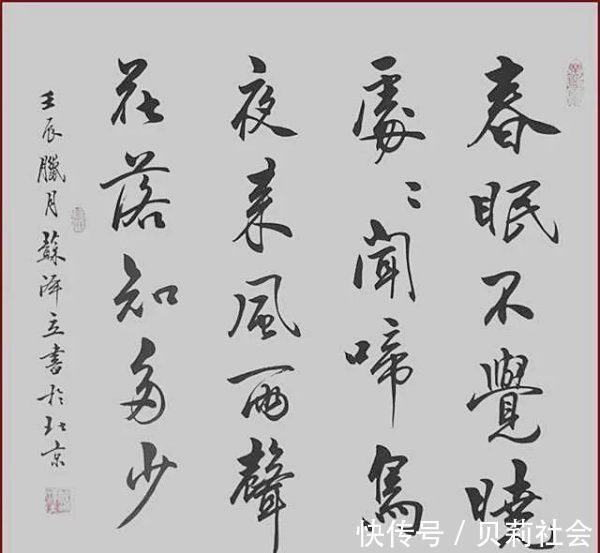 春眠不覺曉
處〻聞啼鳥
夜来風雨聲
花落知多少
壬辰臘月蘇澤立書於北京
快传号 / 贝莉社会